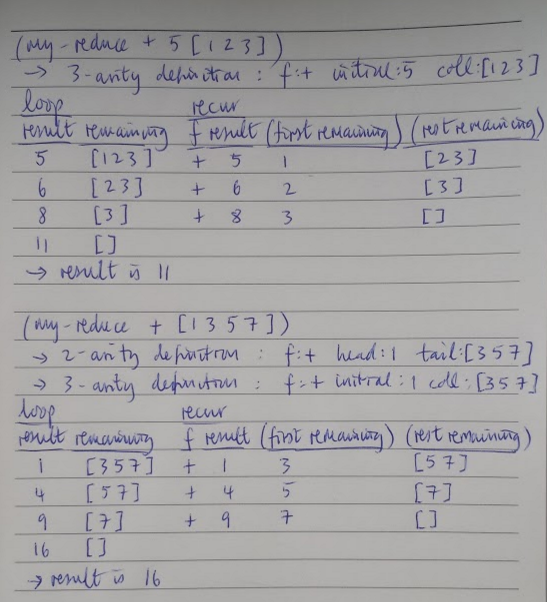 (my-reduce + 5 [1 2 3])
→ 3-arity definition : f:+ initial:5 coll:[1 2 3]
loop recur
result remaining f result (first remaining) (rest remaining)
5 [1 2 3] + 5 1 [2 3]
6 [2 3] + 6 2 [3]
8 [3] + 8 3 []
11 []
→ result is 11
(my-reduce + [1 3 5 7])
→ 2-arity definition : f:+ head:1 tail:[3 5 7]
→ 3-arity definition : f:+ initial:1 coll:[3 5 7]
loop recur
result remaining f result (first remaining) (rest remaining)
1 [3 5 7] + 1 3 [5 7]
4 [5 7] + 4 5 [7]
9 [7] + 9 7 []
16 []
→ result is 16